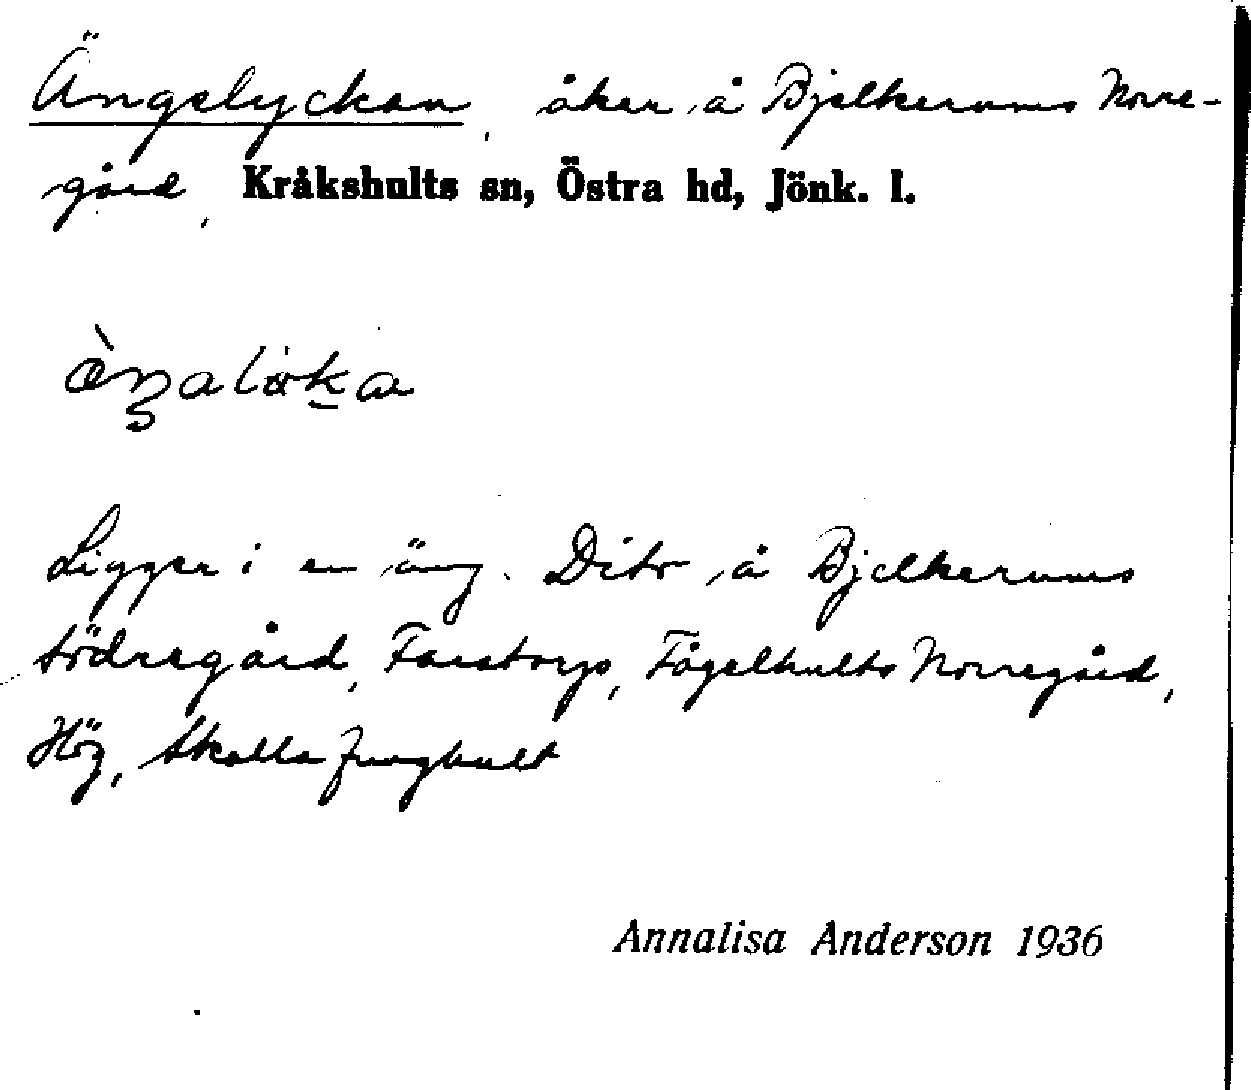 Ängslyckan, åker å Bjelkerums Norre-
gård, Kråkshults sn, Östra hd, Jönk. l.
Ligger i en äng. Dito å Bjelkerums
södregård, Farstorp, Fågelhults Norregård,
Hög, Skalla ljunghult
Annalisa Anderson 1936